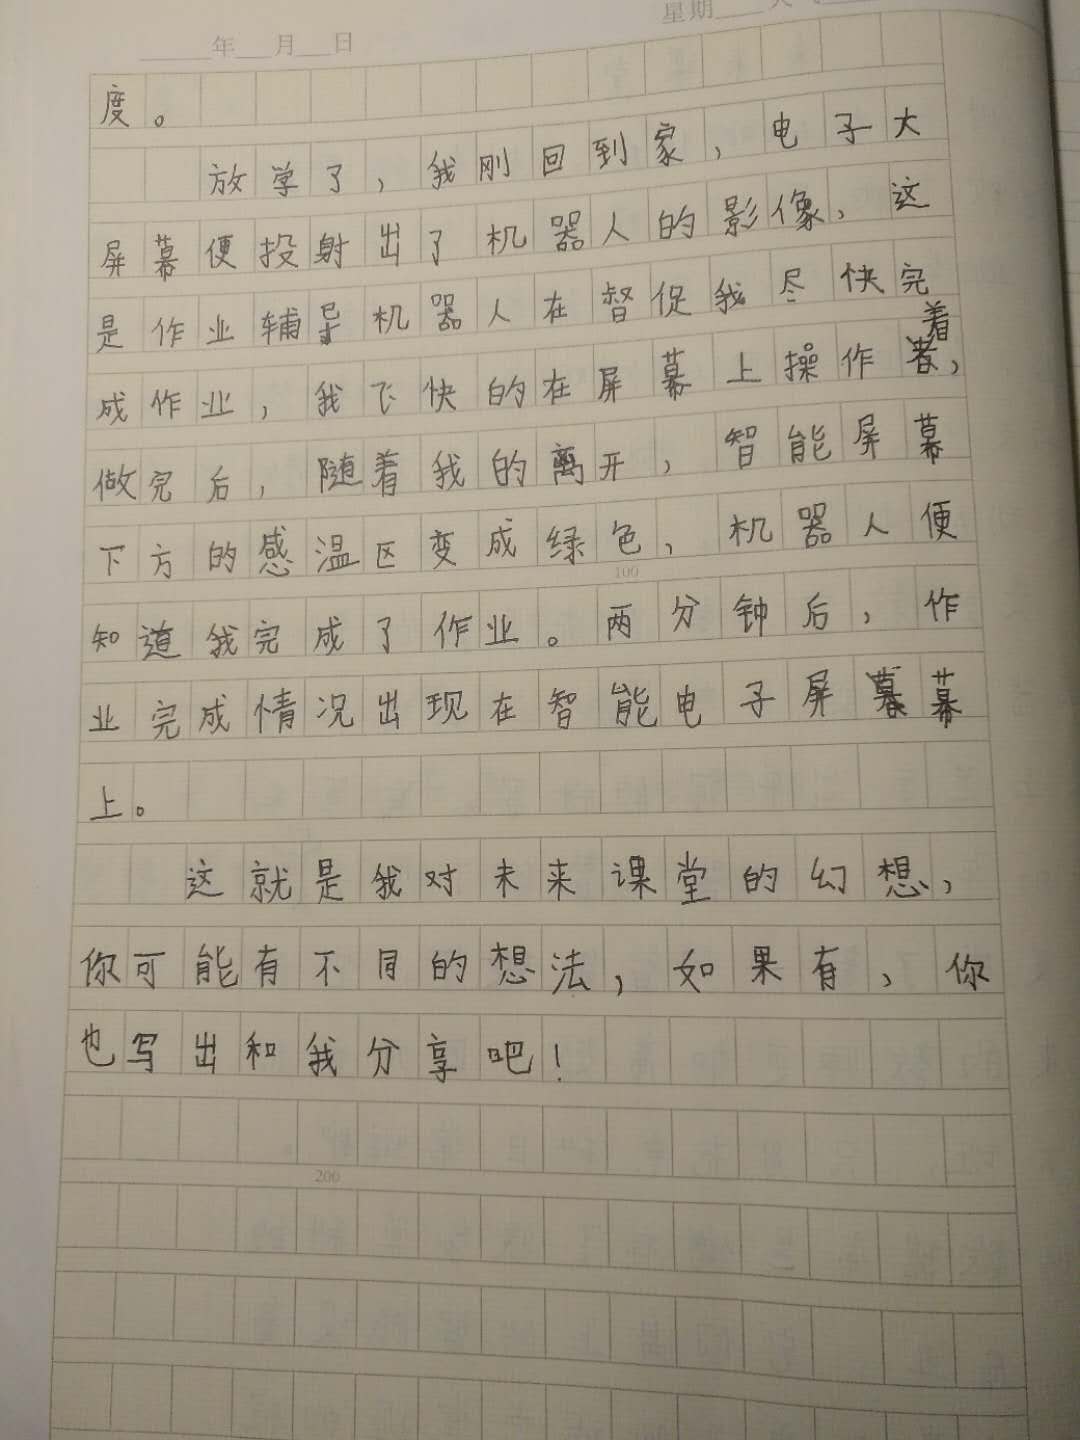 年 月 日 星期
度。
放学了，我刚回到家，电子大
屏幕便投射出了机器人的影像，这
是作业辅导机器人在督促我尽快完
成作业，我飞快的在屏幕上操作着，
做完后，随着我的离开，智能屏幕
下方的感温区变成绿色，机器人便
100
知道我完成了作业。两分钟后，作
业完成情况出现在智能电子屏幕
上。
这就是我对未来课堂的幻想，
你可能有不同的想法，如果有，你
也写出和我分享吧！
200